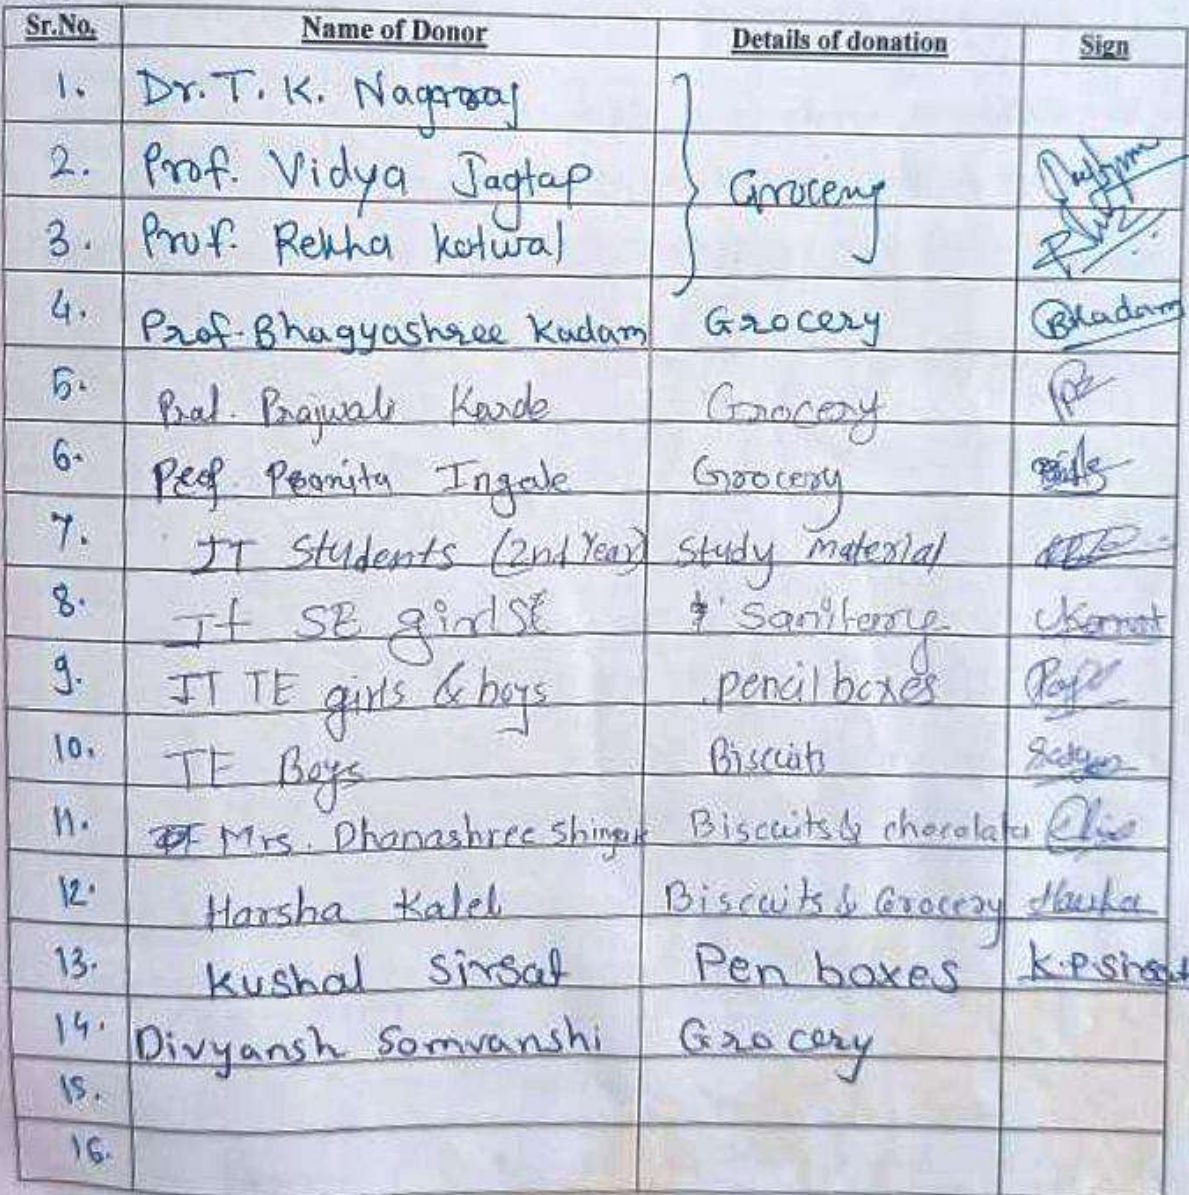 Sr.No. Name of Donor Details of donation Sign
1. Dr. T. K. Nagaraj
2. Prof. Vidya Jagtap Grocery
3. Prof. Rekha Kotwal
4. Prof. Bhagyashree Kadam Grocery BKadam
5. Prof. Prajwali Karde Grocery
6. Prof. Pranita Ingale Grocery
7. IT Students (2nd Year) Study material
8. It SE girls Saniterry
9. IT TE girls & boys pencil boxes
10. TE Boys Biscuits
11. Mrs. Dhanashree Biscuits & chocolate
12. Harsha Kalel Biscuits & Grocery Harsha
13. Kushal Sirsat Pen boxes K.P.Sirsat
14. Divyansh Somvanshi Grocery
15.
16.